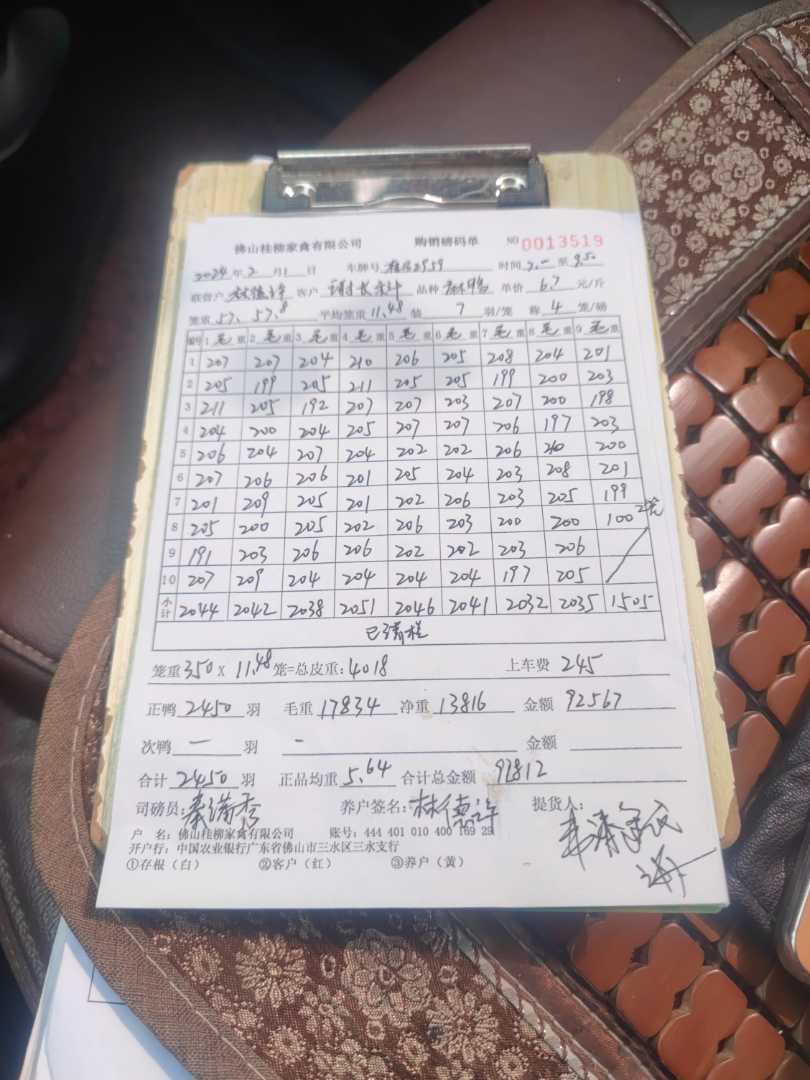 佛山桂柳家禽有限公司 购销磅码单 NO 0013519
2024年2月1日 车牌号 2959 时间 7.00 至 9.50
联营户 林德许 客户 品种 麻鸭 单价 6.7 元/斤
笼重 57、57.8 平均笼重 11.48 装 7 羽/笼 称 4 笼/磅
编号 1 毛重 2 毛重 3 毛重 4 毛重 5 毛重 6 毛重 7 毛重 8 毛重 9 毛重
1 207 207 204 210 206 205 208 204 201
2 205 199 205 211 205 205 199 200 203
3 211 205 192 207 207 203 207 200 198
4 204 200 204 205 207 207 206 197 203
5 206 204 207 204 202 202 206 210 200
6 207 206 206 201 205 204 203 208 201
7 201 209 205 201 202 206 203 205 199
8 205 200 205 202 206 203 200 200 100 2笼
9 191 203 206 206 202 202 203 206
10 207 209 204 204 204 204 197 205
小计 2044 2042 2038 2051 2046 2041 2032 2035 1505
已清栏
笼重 350 X 11.48 笼=总皮重: 4018 上车费 245
正鸭 2450 羽 毛重 17834 净重 13816 金额 92567
次鸭 — 羽 - 金额
合计 2450 羽 正品均重 5.64 合计总金额 92812
司磅员: 养户签名: 林德许 提货人:
户 名: 佛山桂柳家禽有限公司 账号: 444 401 010 400 169 29
开户行: 中国农业银行广东省佛山市三水区三水支行
①存根（白） ②客户（红） ③养户（黄）